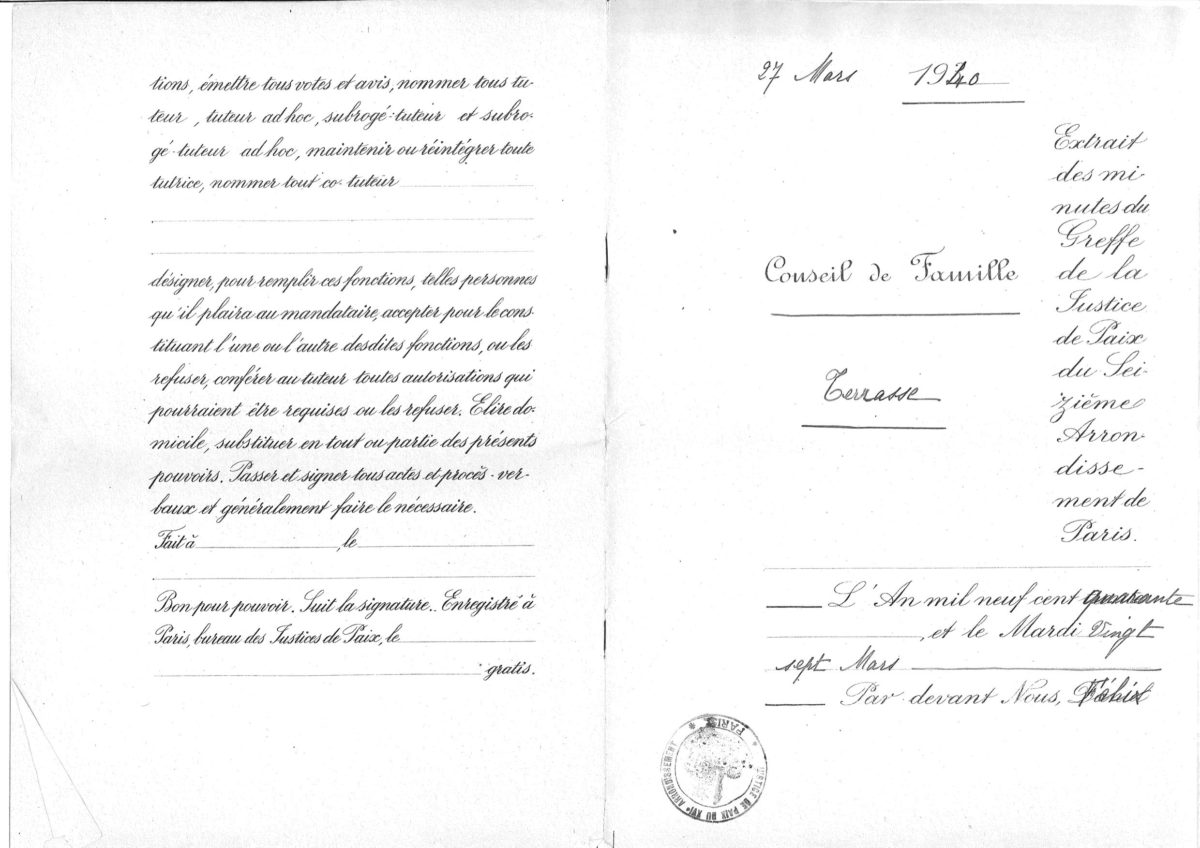 tions, émettre tous votes et avis, nommer tous tu-
teur, tuteur ad hoc, subrogé-tuteur et subro-
gé-tuteur ad hoc, maintenir ou réintégrer toute
tutrice, nommer tout co-tuteur
désigner, pour remplir ces fonctions, telles personnes
qu'il plaira au mandataire, accepter pour le cons-
tituant l'une ou l'autre desdites fonctions, ou les
refuser, conférer au tuteur toutes autorisations qui
pourraient être requises ou les refuser. Elire do-
micile, substituer en tout ou partie des présents
pouvoirs. Passer et signer tous actes et procès-ver-
baux et généralement faire le nécessaire.
Fait à , le
Bon pour pouvoir. Suit la signature. Enregistré à
Paris, bureau des Justices de Paix, le
gratis.
27 Mars 1940
Extrait
des mi-
nutes du
Greffe
de la
Justice
de Paix
du Sei-
zième
Arron-
disse-
ment de
Paris.
Conseil de Famille
Terrasse
L'An mil neuf cent quarante
, et le Mardi Vingt
sept Mars
Par devant Nous,
JUSTICE DE PAIX DU XVIe ARRONDISSEMENT
* PARIS *